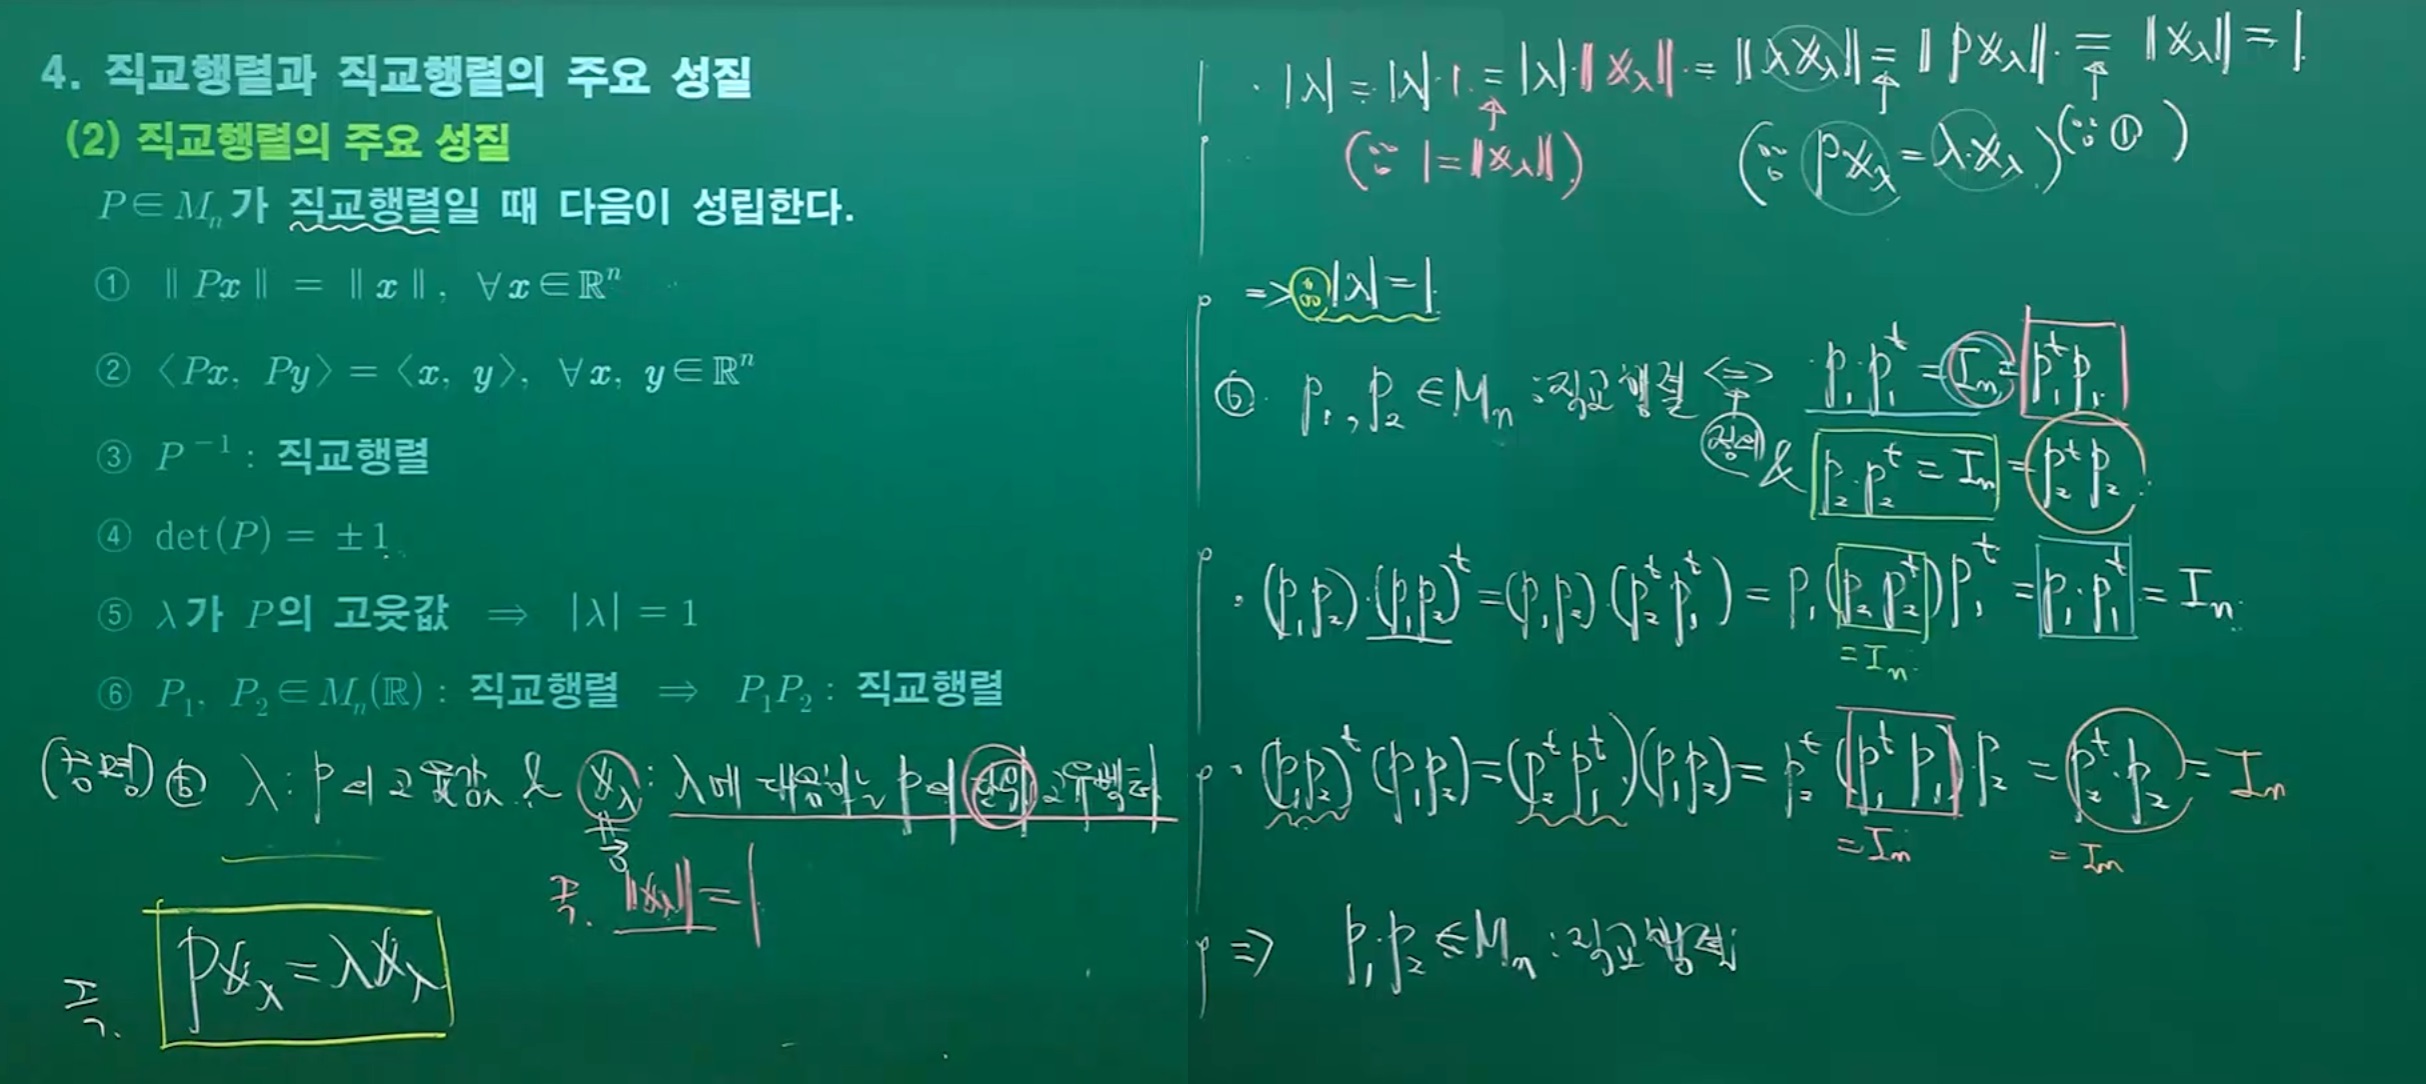 4. 직교행렬과 직교행렬의 주요 성질
(2) 직교행렬의 주요 성질
P∈Mₙ가 직교행렬일 때 다음이 성립한다.
① ‖Px‖ = ‖x‖, ∀x∈ℝⁿ
② ⟨Px, Py⟩ = ⟨x, y⟩, ∀x, y∈ℝⁿ
③ P⁻¹ : 직교행렬
④ det(P) = ±1
⑤ λ가 P의 고윳값 ⇒ |λ| = 1
⑥ P₁, P₂∈Mₙ(ℝ) : 직교행렬 ⇒ P₁P₂ : 직교행렬
(증명) ⑤ λ : P의 고윳값 & x_λ : λ에 대응하는 P의 단위고유벡터
≠ 0⃗
즉. ‖x_λ‖ = 1
즉. Px_λ = λx_λ
· |λ| = |λ|·1 = |λ|·‖x_λ‖ = ‖λx_λ‖ = ‖Px_λ‖ = ‖x_λ‖ = 1
(∵ 1 = ‖x_λ‖) (∵ Px_λ = λ·x_λ) (∵ ①)
=> ∴ |λ| = 1
⑥ P₁, P₂ ∈ Mₙ : 직교행렬 <=> P₁·P₁ᵗ = Iₙ = P₁ᵗP₁
정의 & P₂·P₂ᵗ = Iₙ = P₂ᵗP₂
· (P₁P₂)·(P₁P₂)ᵗ = (P₁P₂)·(P₂ᵗP₁ᵗ) = P₁(P₂P₂ᵗ)P₁ᵗ = P₁·P₁ᵗ = Iₙ
= Iₙ
· (P₁P₂)ᵗ(P₁P₂) = (P₂ᵗP₁ᵗ)(P₁P₂) = P₂ᵗ(P₁ᵗP₁)·P₂ = P₂ᵗ·P₂ = Iₙ
= Iₙ = Iₙ
=> P₁·P₂ ∈ Mₙ : 직교행렬